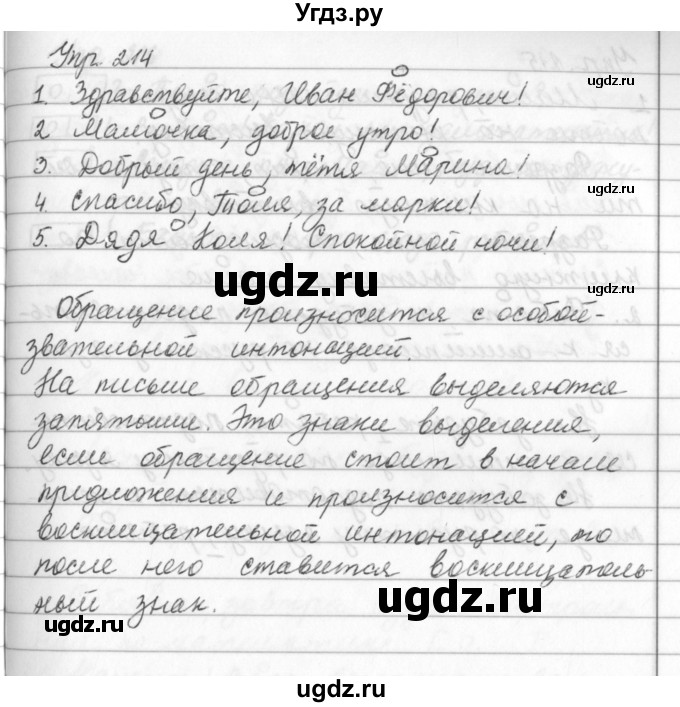 Угдз.ру
Упр. 214
1. Здравствуйте, Иван Фёдорович!
ugdz.ru
2 Мамочка, доброе утро!
3. Добрый день, тётя Марина!
ugdz.ru
4. Спасибо, Толя, за марки!
5. Дядя Коля! Спокойной ночи!
ugdz.ru
ugdz.ru
Обращение произносится с особой-
звательной интонацией.
На письме обращения выделяются
запятыми. Это знаки выделения,
если обращение стоит в начале
предложения и произносится с
восклицательной интонацией, то
после него ставится восклицатель-
ный знак.
ugdz.ru
ugdz.ru
ugdz.ru